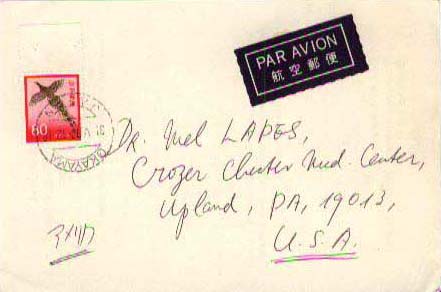 PAR AVION
航空郵便
80
OKAYAMA
DR. Mel LAPES,
Crozer Chester Med. Center,
Upland, PA, 19013,
U.S.A.
アメリカ